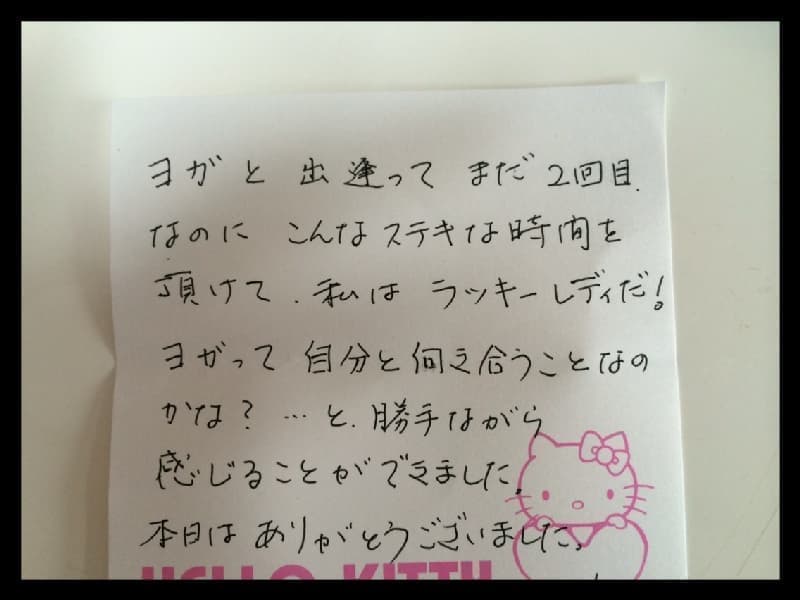 ヨガと出逢ってまだ2回目
なのにこんなステキな時間を
頂けて、私はラッキーレディだ!
ヨガって自分と向き合うことなの
かな?…と、勝手ながら
感じることができました。
本日はありがとうございました。
HELLO KITTY